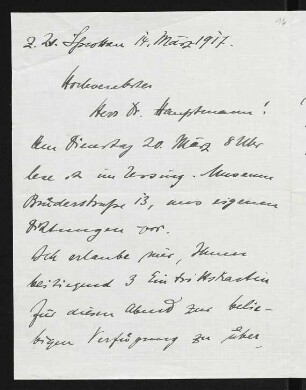 16
z. Zt. Sprottau 14. März 1917.
Hochverehrter
Herr Dr. Hauptmann!
Am Dienstag 20. März 8 Uhr
lese ich im Lessing-Museum
Brüderstraße 13, aus eigenen
Dichtungen vor.
Ich erlaube mir, Ihnen
beiliegend 3 Eintrittskarten
für diesen Abend zur belie-
bigen Verfügung zu über-